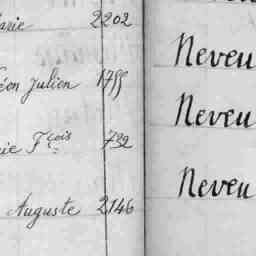 arie 2202
éon Julien 1755
rie Fçois 792
Auguste 2146
Neveu
Neveu
Neveu